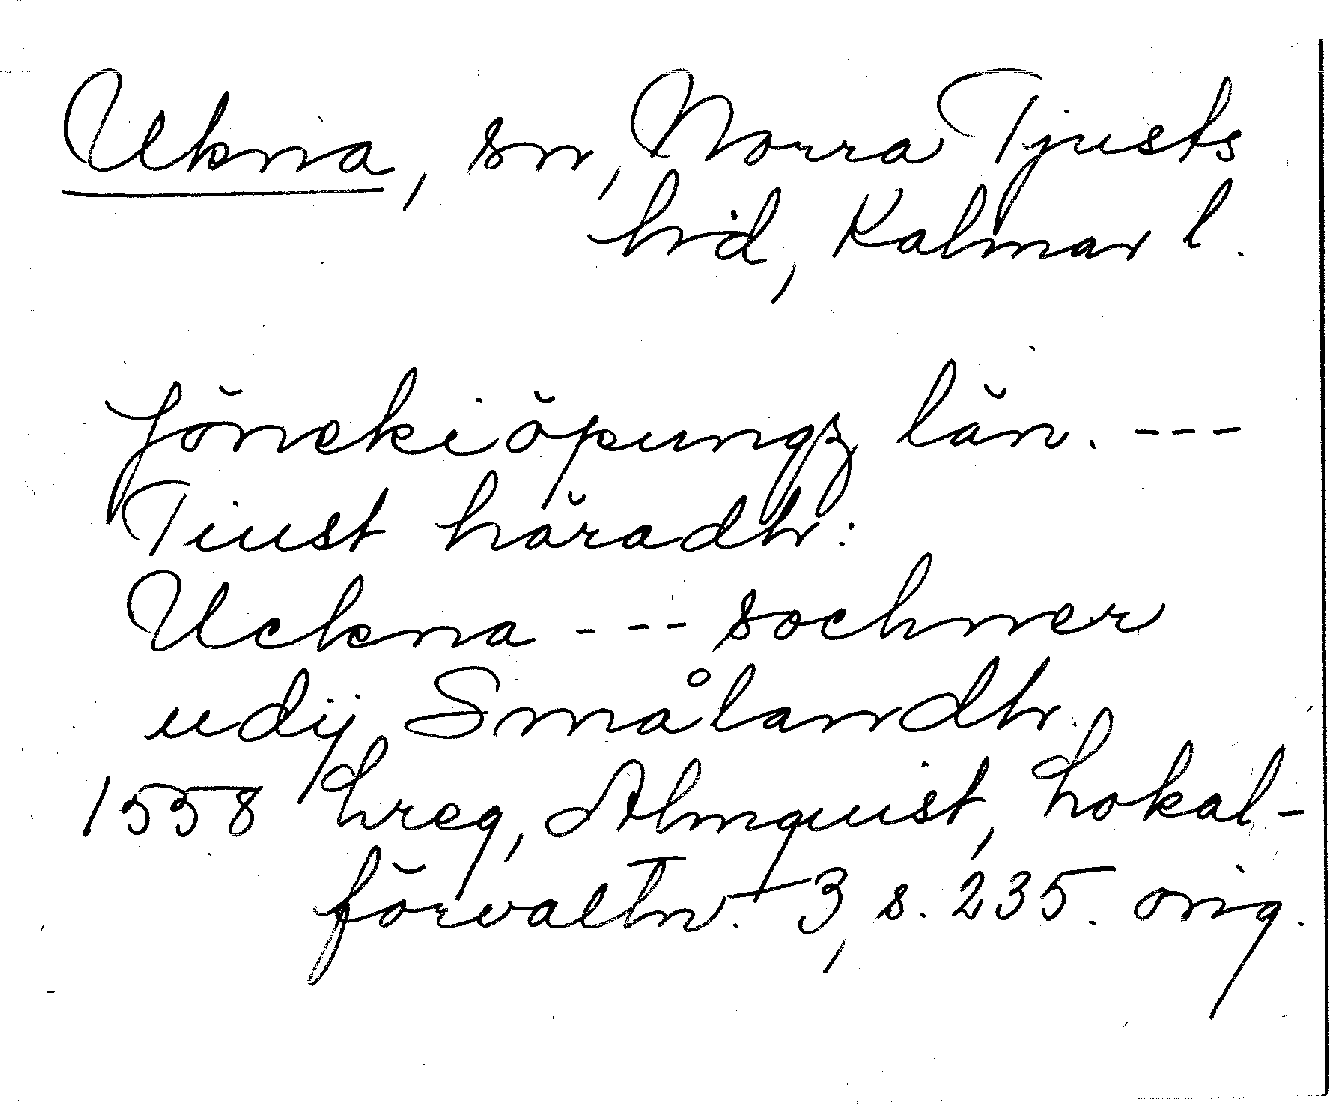 Ukna, sn, Norra Tjusts
hd, Kalmar l.
Jönekiöpungz län. ---
Tiust häradh:
Uckna --- sochner
udij Smålandh.
1558 Lreg, Almquist, Lokal-
förvaltn. 3, s. 235. orig.